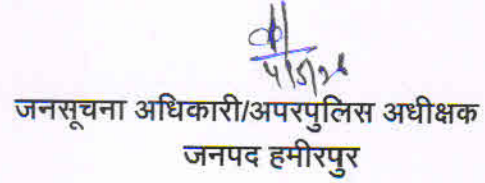 जनसूचना अधिकारी/अपरपुलिस अधीक्षक
जनपद हमीरपुर